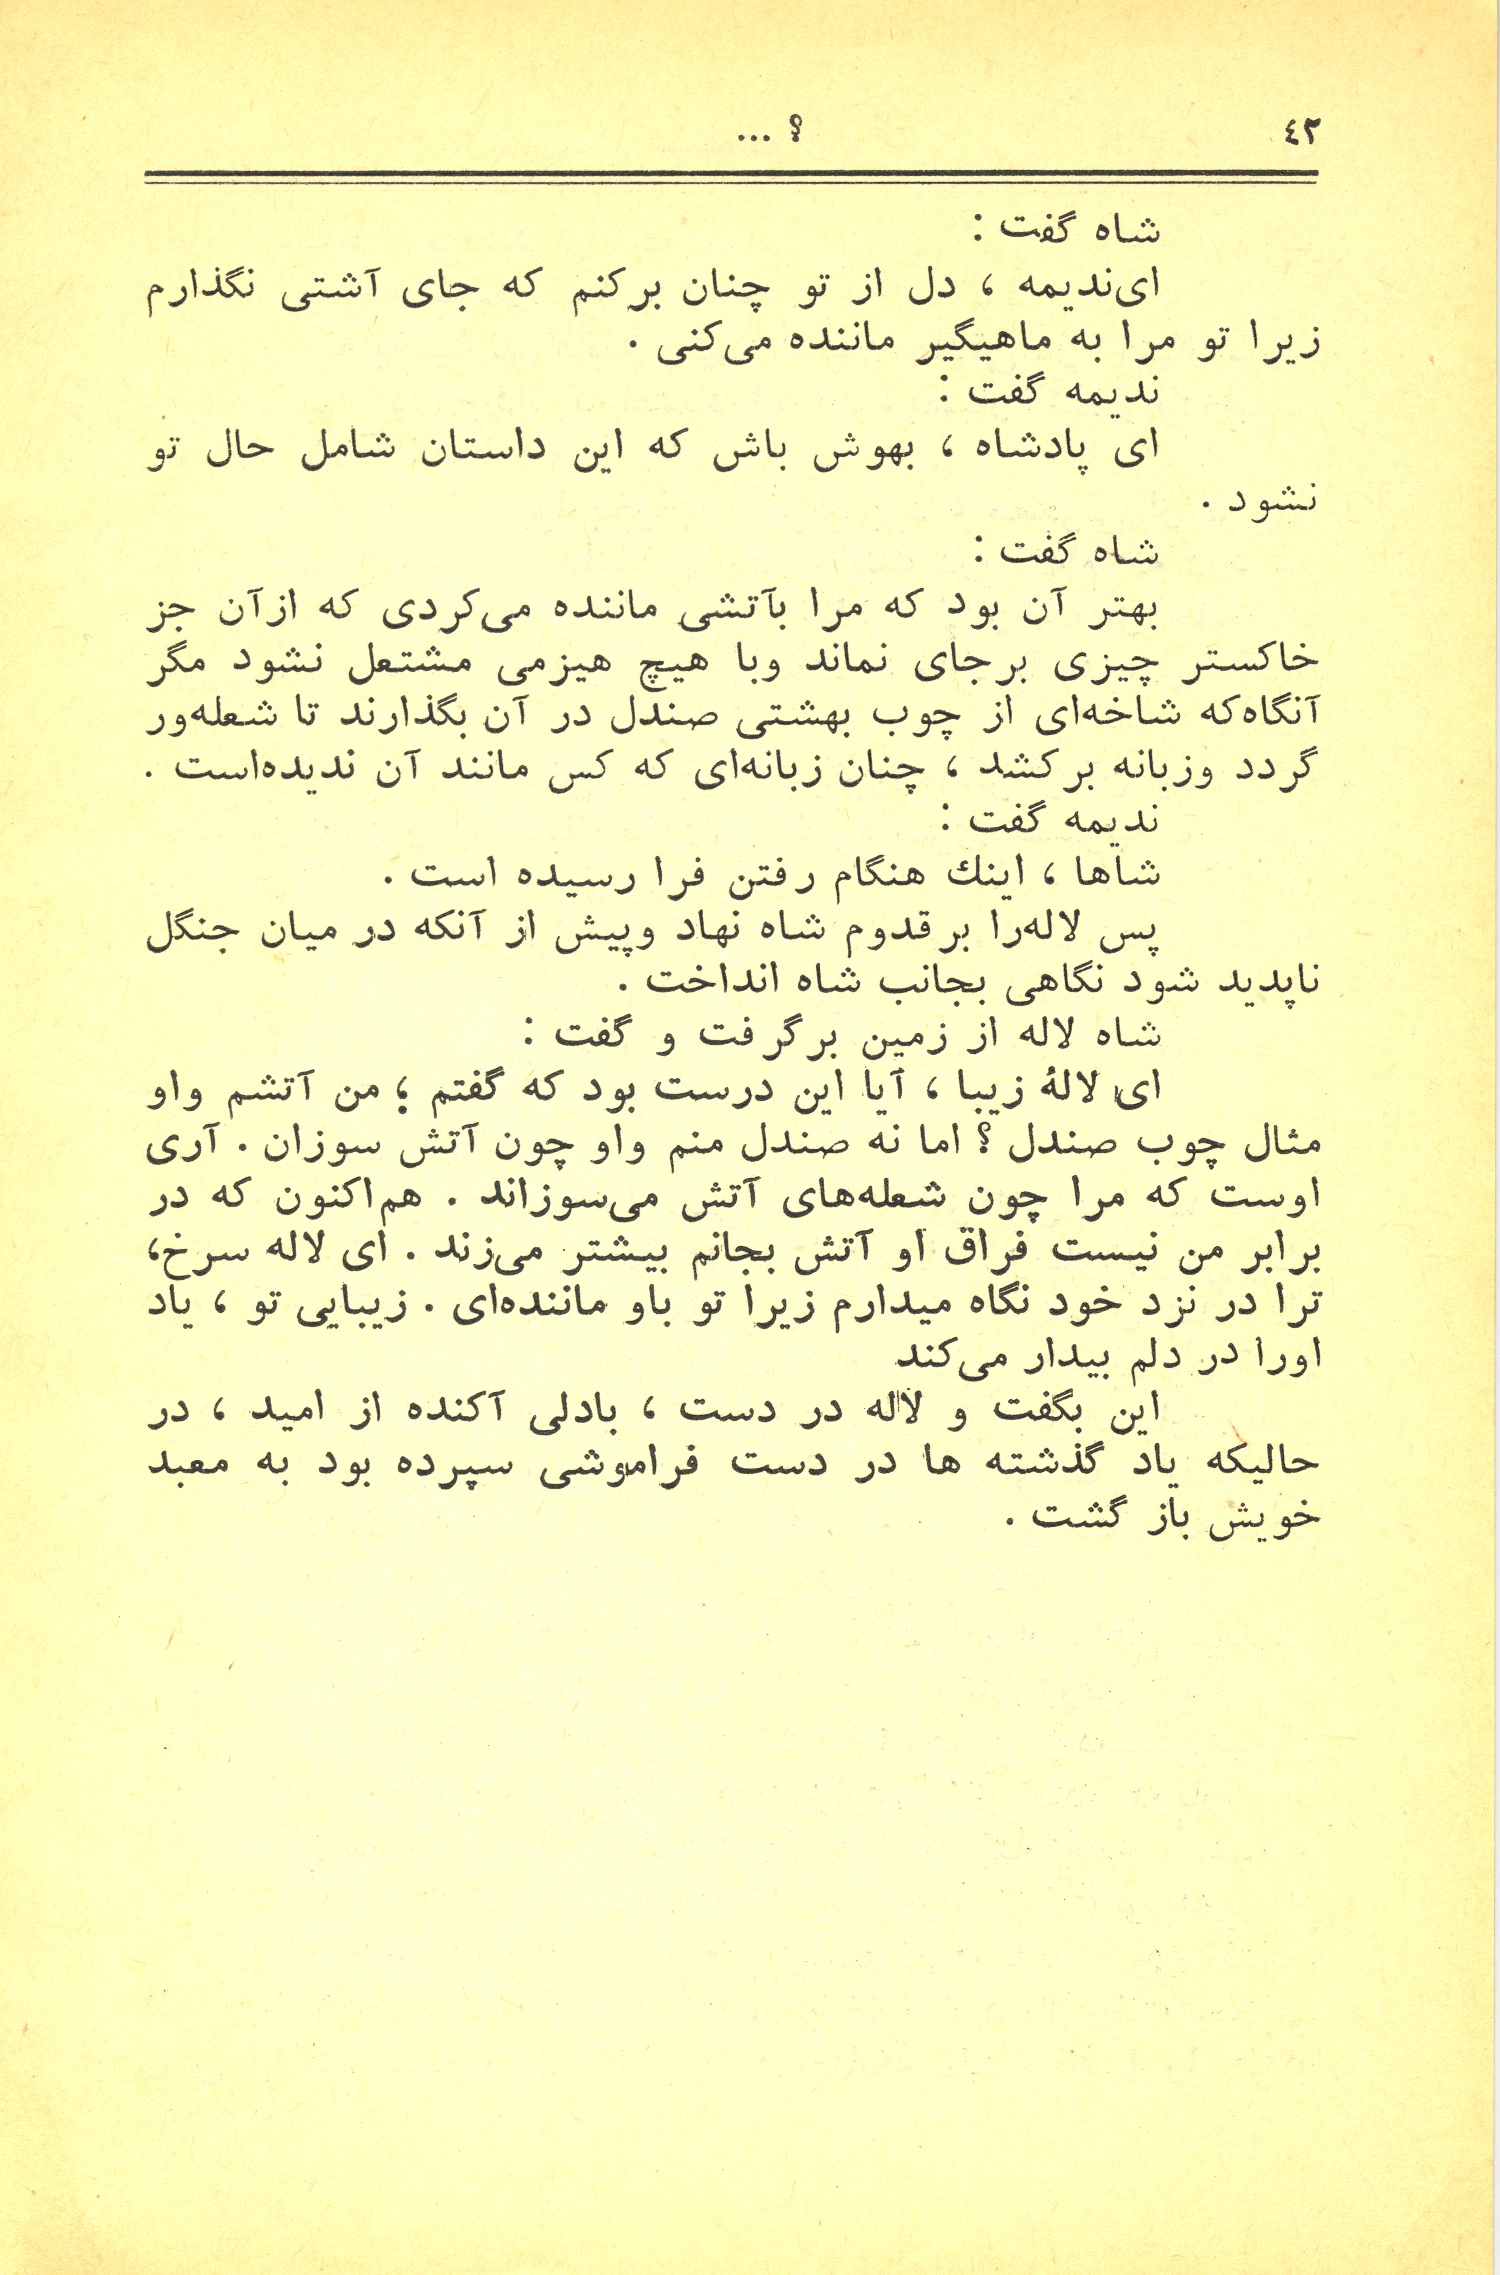 ٤٢
؟ ...
شاه گفت :
ای‌ندیمه ، دل از تو چنان بر‌کنم که جای آشتی نگذارم
زیرا تو مرا به ماهیگیر ماننده می‌کنی .
ندیمه گفت :
ای پادشاه ، بهوش باش که این داستان شامل حال تو
نشود .
شاه گفت :
بهتر آن بود که مرا بآتشی ماننده می‌کردی که ازآن جز
خاکستر چیزی برجای نماند وبا هیچ هیزمی مشتعل نشود مگر
آنگاه‌که شاخه‌ای از چوب بهشتی صندل در آن بگذارند تا شعله‌ور
گردد وزبانه برکشد ، چنان زبانه‌ای که کس مانند آن ندیده‌است .
ندیمه گفت :
شاها ، اینك هنگام رفتن فرا رسیده است .
پس لاله‌را برقدوم شاه نهاد وپیش از آنکه در میان جنگل
ناپدید شود نگاهی بجانب شاه انداخت .
شاه لاله از زمین برگرفت و گفت :
ای لالهٔ زیبا ، آیا این درست بود که گفتم ؛ من آتشم واو
مثال چوب صندل ؟ اما نه صندل منم واو چون آتش سوزان . آری
اوست که مرا چون شعله‌های آتش می‌سوزاند . هم‌اکنون که در
برابر من نیست فراق او آتش بجانم بیشتر می‌زند . ای لاله سرخ،
ترا در نزد خود نگاه میدارم زیرا تو باو ماننده‌ای . زیبایی تو ، یاد
اورا در دلم بیدار می‌کند
این بگفت و لاله در دست ، بادلی آکنده از امید ، در
حالیکه یاد گذشته ها در دست فراموشی سپرده بود به معبد
خویش باز گشت .